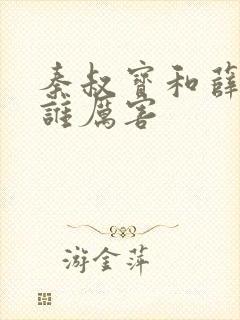 秦叔寶和薛
誰厲害
游金萍